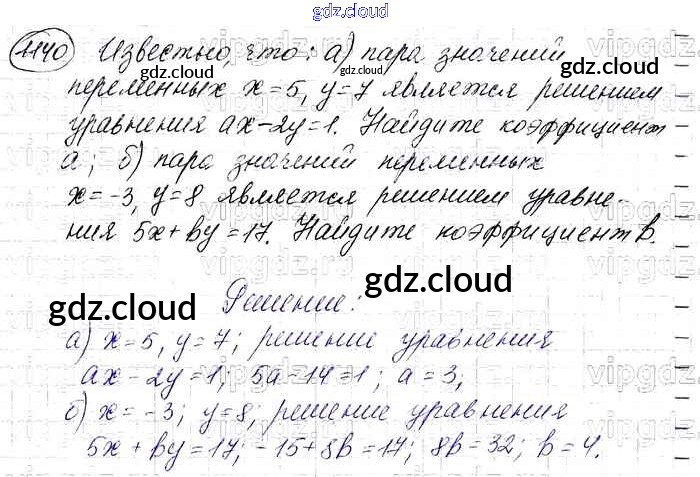 gdz.cloud
1140 Известно, что: а) пара значений
gdz.cloud gdz.cloud
переменных x=5, y=7 является решением
уравнения ax-2y=1. Найдите коэффициент
а; б) пара значений переменных
x=-3, y=8 является решением уравне-
ния 5x+by=17. Найдите коэффициент b.
gdz.cloud
gdz.cloud Решение: gdz.cloud
а) x=5, y=7; решение уравнения
ax-2y=1; 5a-14=1; a=3;
б) x=-3; y=8; решение уравнения
5x+by=17; -15+8b=17; 8b=32; b=4.